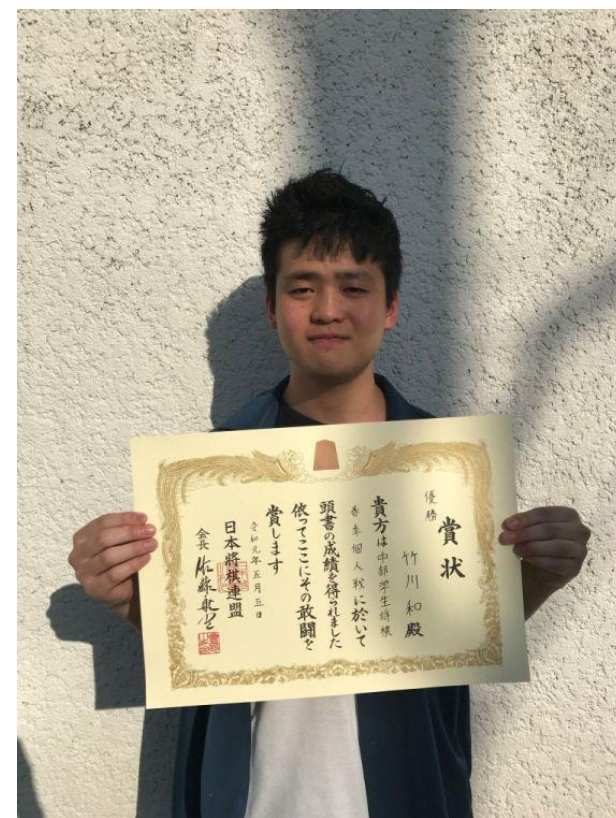 賞状
優勝
竹川和殿
貴方は中部学生将棋
春季個人戦に於いて
頭書の成績を得られました
依ってここにその敢闘を
賞します
令和元年五月五日
日本将棋連盟
会長 佐藤康光